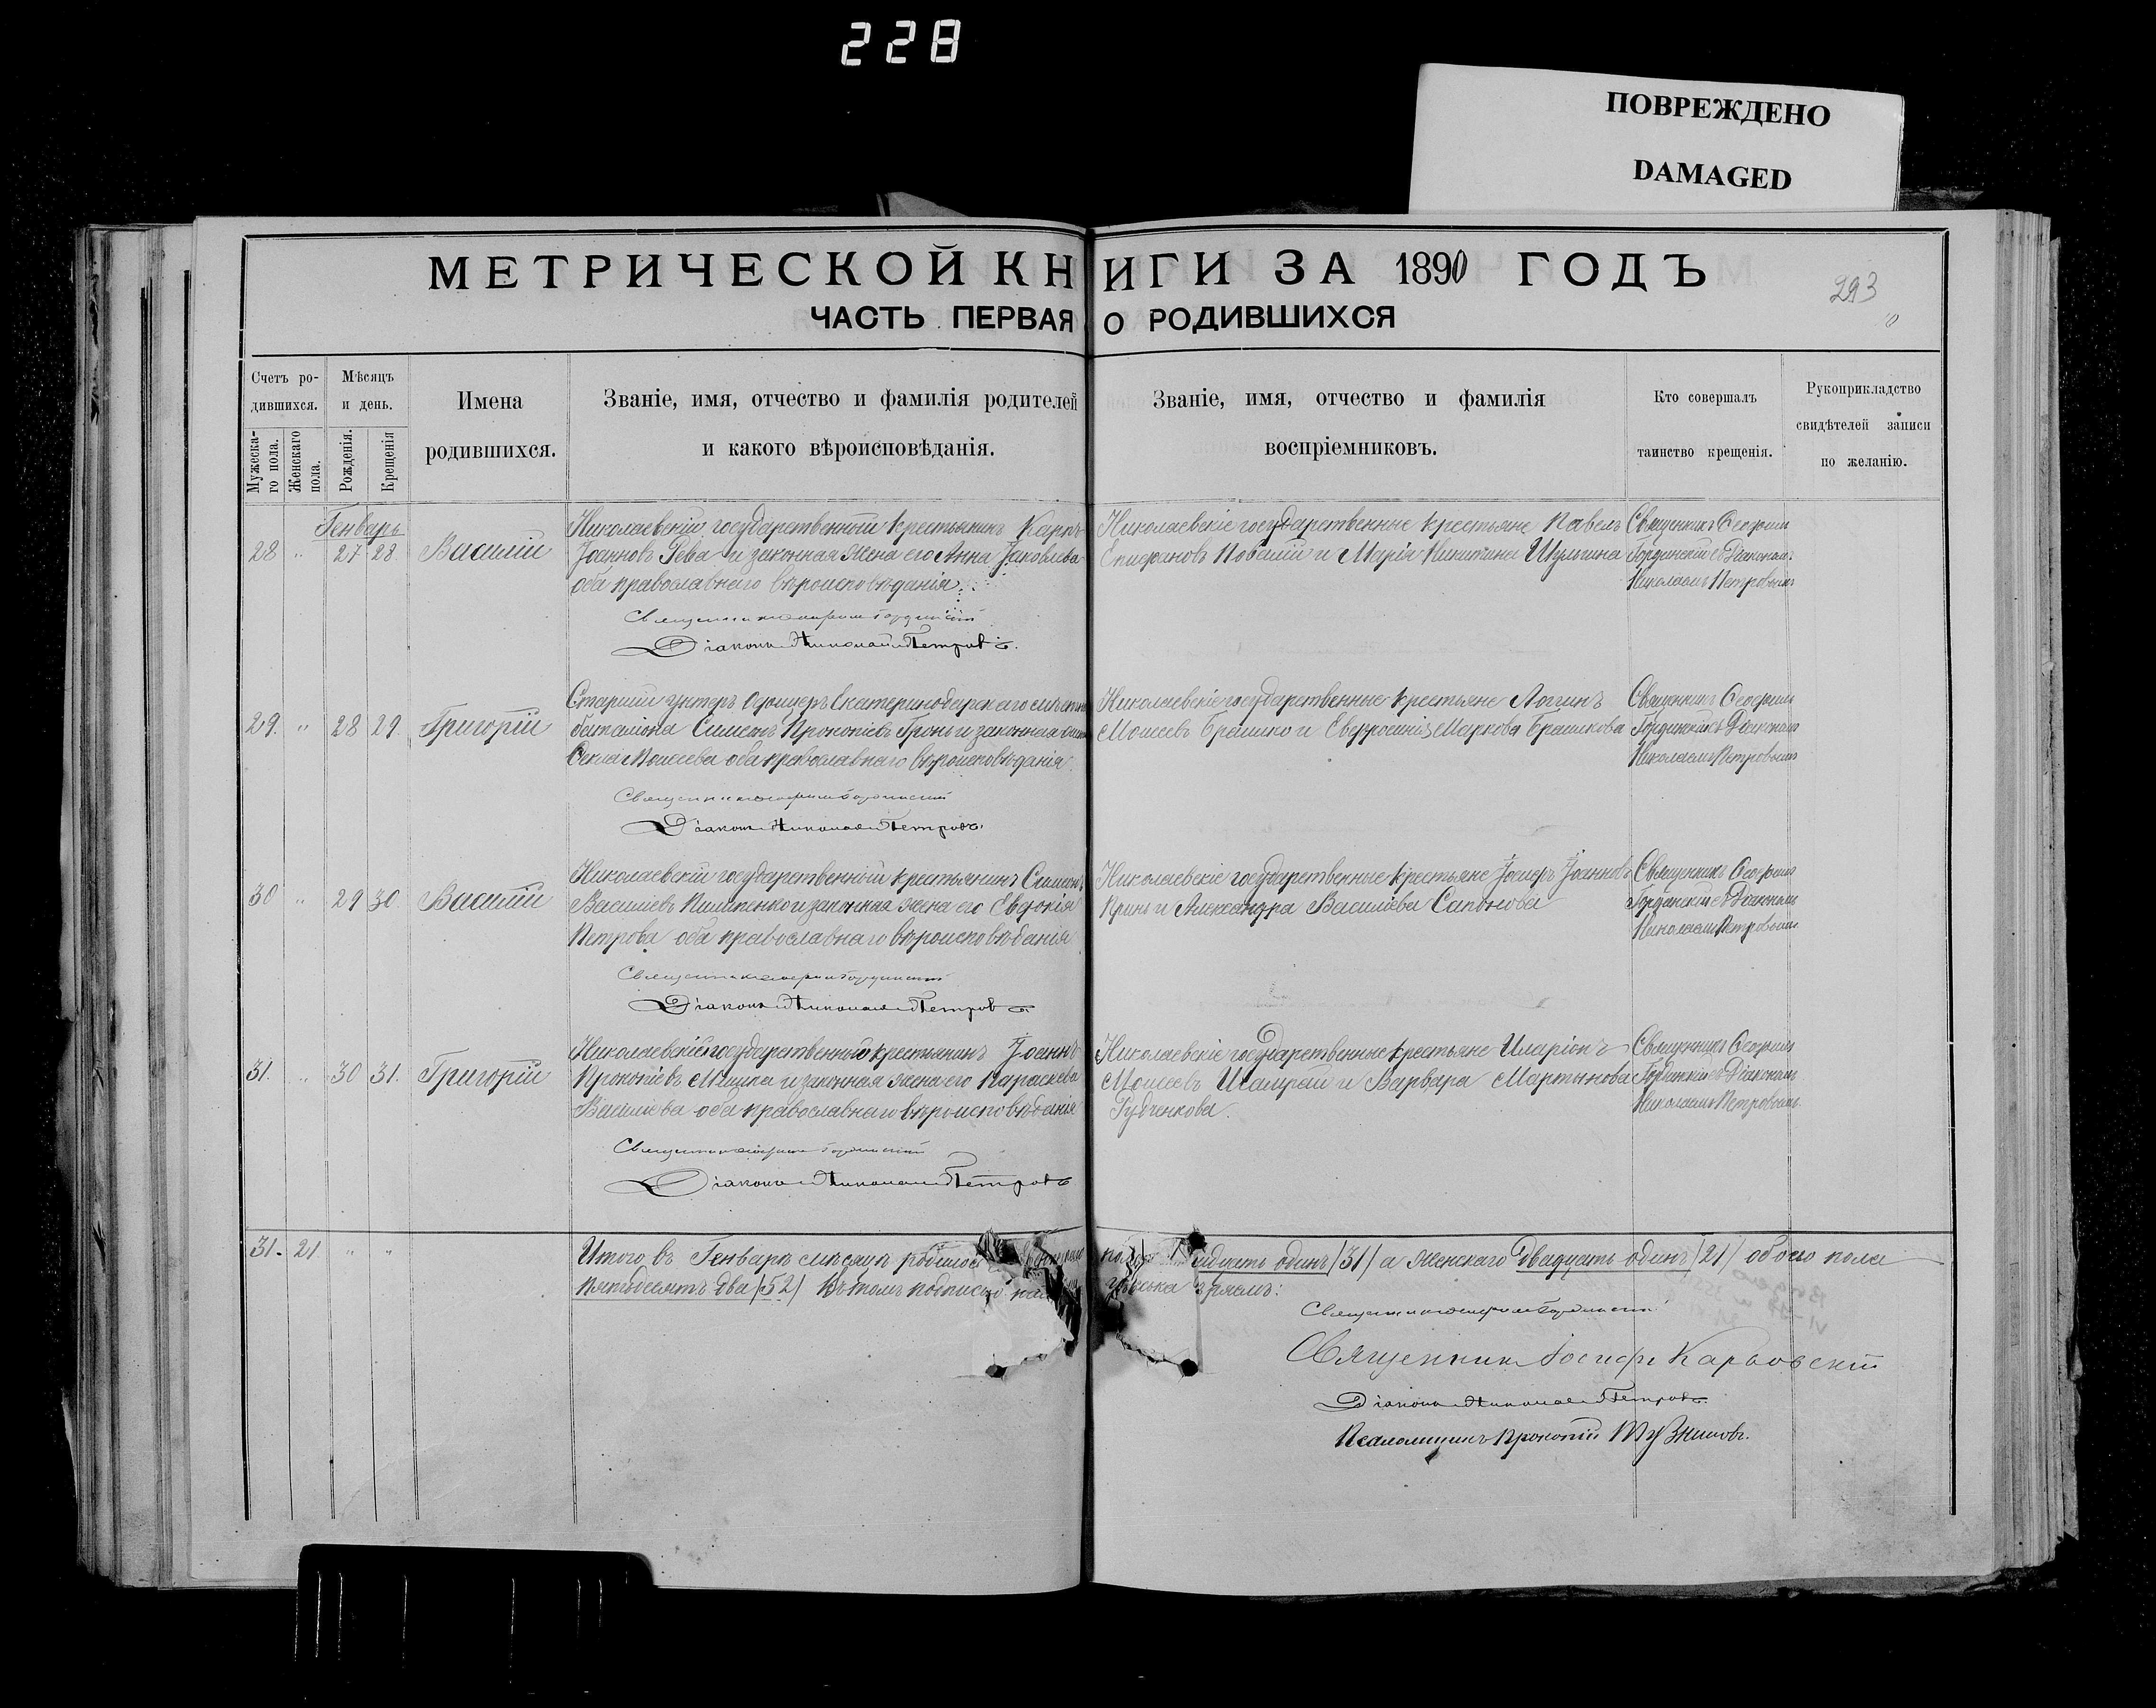 228
ПОВРЕЖДЕНО
DAMAGED
МЕТРИЧЕСКОЙ КНИГИ ЗА 1890 ГОДЪ
293
ЧАСТЬ ПЕРВАЯ О РОДИВШИХСЯ
Счетъ родившихся.
Мужескаго пола.
Женскаго пола.
Мѣсяцъ и день.
Рожденія.
Крещенія
Имена родившихся.
Званіе, имя, отчество и фамилія родителей
и какого вѣроисповѣданія.
Званіе, имя, отчество и фамилія
воспріемниковъ.
Кто совершалъ
таинство крещенія.
Рукоприкладство
свидѣтелей записи
по желанію.
Генварь
28 " 27 28 Василій
Николаевскій государственный крестьянинъ Карпъ
Іоанновъ Рева и законная жена его Анна Іаковлева
оба православнаго вѣроисповѣданія.
Священникъ Гординскій
Діаконъ Николай Петровъ.
Николаевскіе государственные крестьяне Павелъ
Епифановъ и Марія Никитина Шулгина
Священникъ Ѳеофилъ
Гординскій съ Діакономъ
Николаемъ Петровымъ
29. " 28 29 Григорій
Старшій унтеръ офицеръ Екатеринодарскаго мѣстн
баталіона Симеонъ Прокопіевъ Гронь и законная жена
Ѳекла Моисеева оба православнаго вѣроисповѣданія.
Священникъ Гординскій
Діаконъ Николай Петровъ.
Николаевскіе государственные крестьяне Логинъ
Моисеевъ Брашко и Евфросинія Маркова Брашкова
Священникъ Ѳеофилъ
Гординскій съ Діакономъ
Николаемъ Петровымъ
30 " 29 30 Василій
Николаевскій государственный крестьянинъ Симеонъ
Василіевъ Пилипенко и законная жена его Евдокія
Петрова оба православнаго вѣроисповѣданія
Священникъ Гординскій
Діаконъ Николай Петровъ
Николаевскіе государственные крестьяне Іосифъ Іоанновъ
Кринь и Александра Василіева Сапонова
Священникъ Ѳеофилъ
Гординскій съ Діакономъ
Николаемъ Петровымъ
31. " 30 31. Григорій
Николаевскій государственный крестьянинъ Іоаннъ
Прокопіевъ Мишка и законная жена его Параскева
Василіева оба православнаго вѣроисповѣданія
Священникъ Гординскій
Діаконъ Николай Петровъ
Николаевскіе государственные крестьяне Иларіонъ
Моисеевъ Шамрай и Варвара Мартынова
Губченкова.
Священникъ Ѳеофилъ
Гординскій съ Діакономъ
Николаемъ Петровымъ
31. 21 " "
Итого въ Генварѣ мѣсяцѣ одинъ /31/ а женскаго двадцать одинъ /21/ обоего пола
пятьдесятъ два /52/ Въ томъ подписью
Священникъ Гординскій
Священникъ Іосифъ Карповскій
Діаконъ Николай Петровъ
Псаломщикъ Прокопій Тужиловъ.